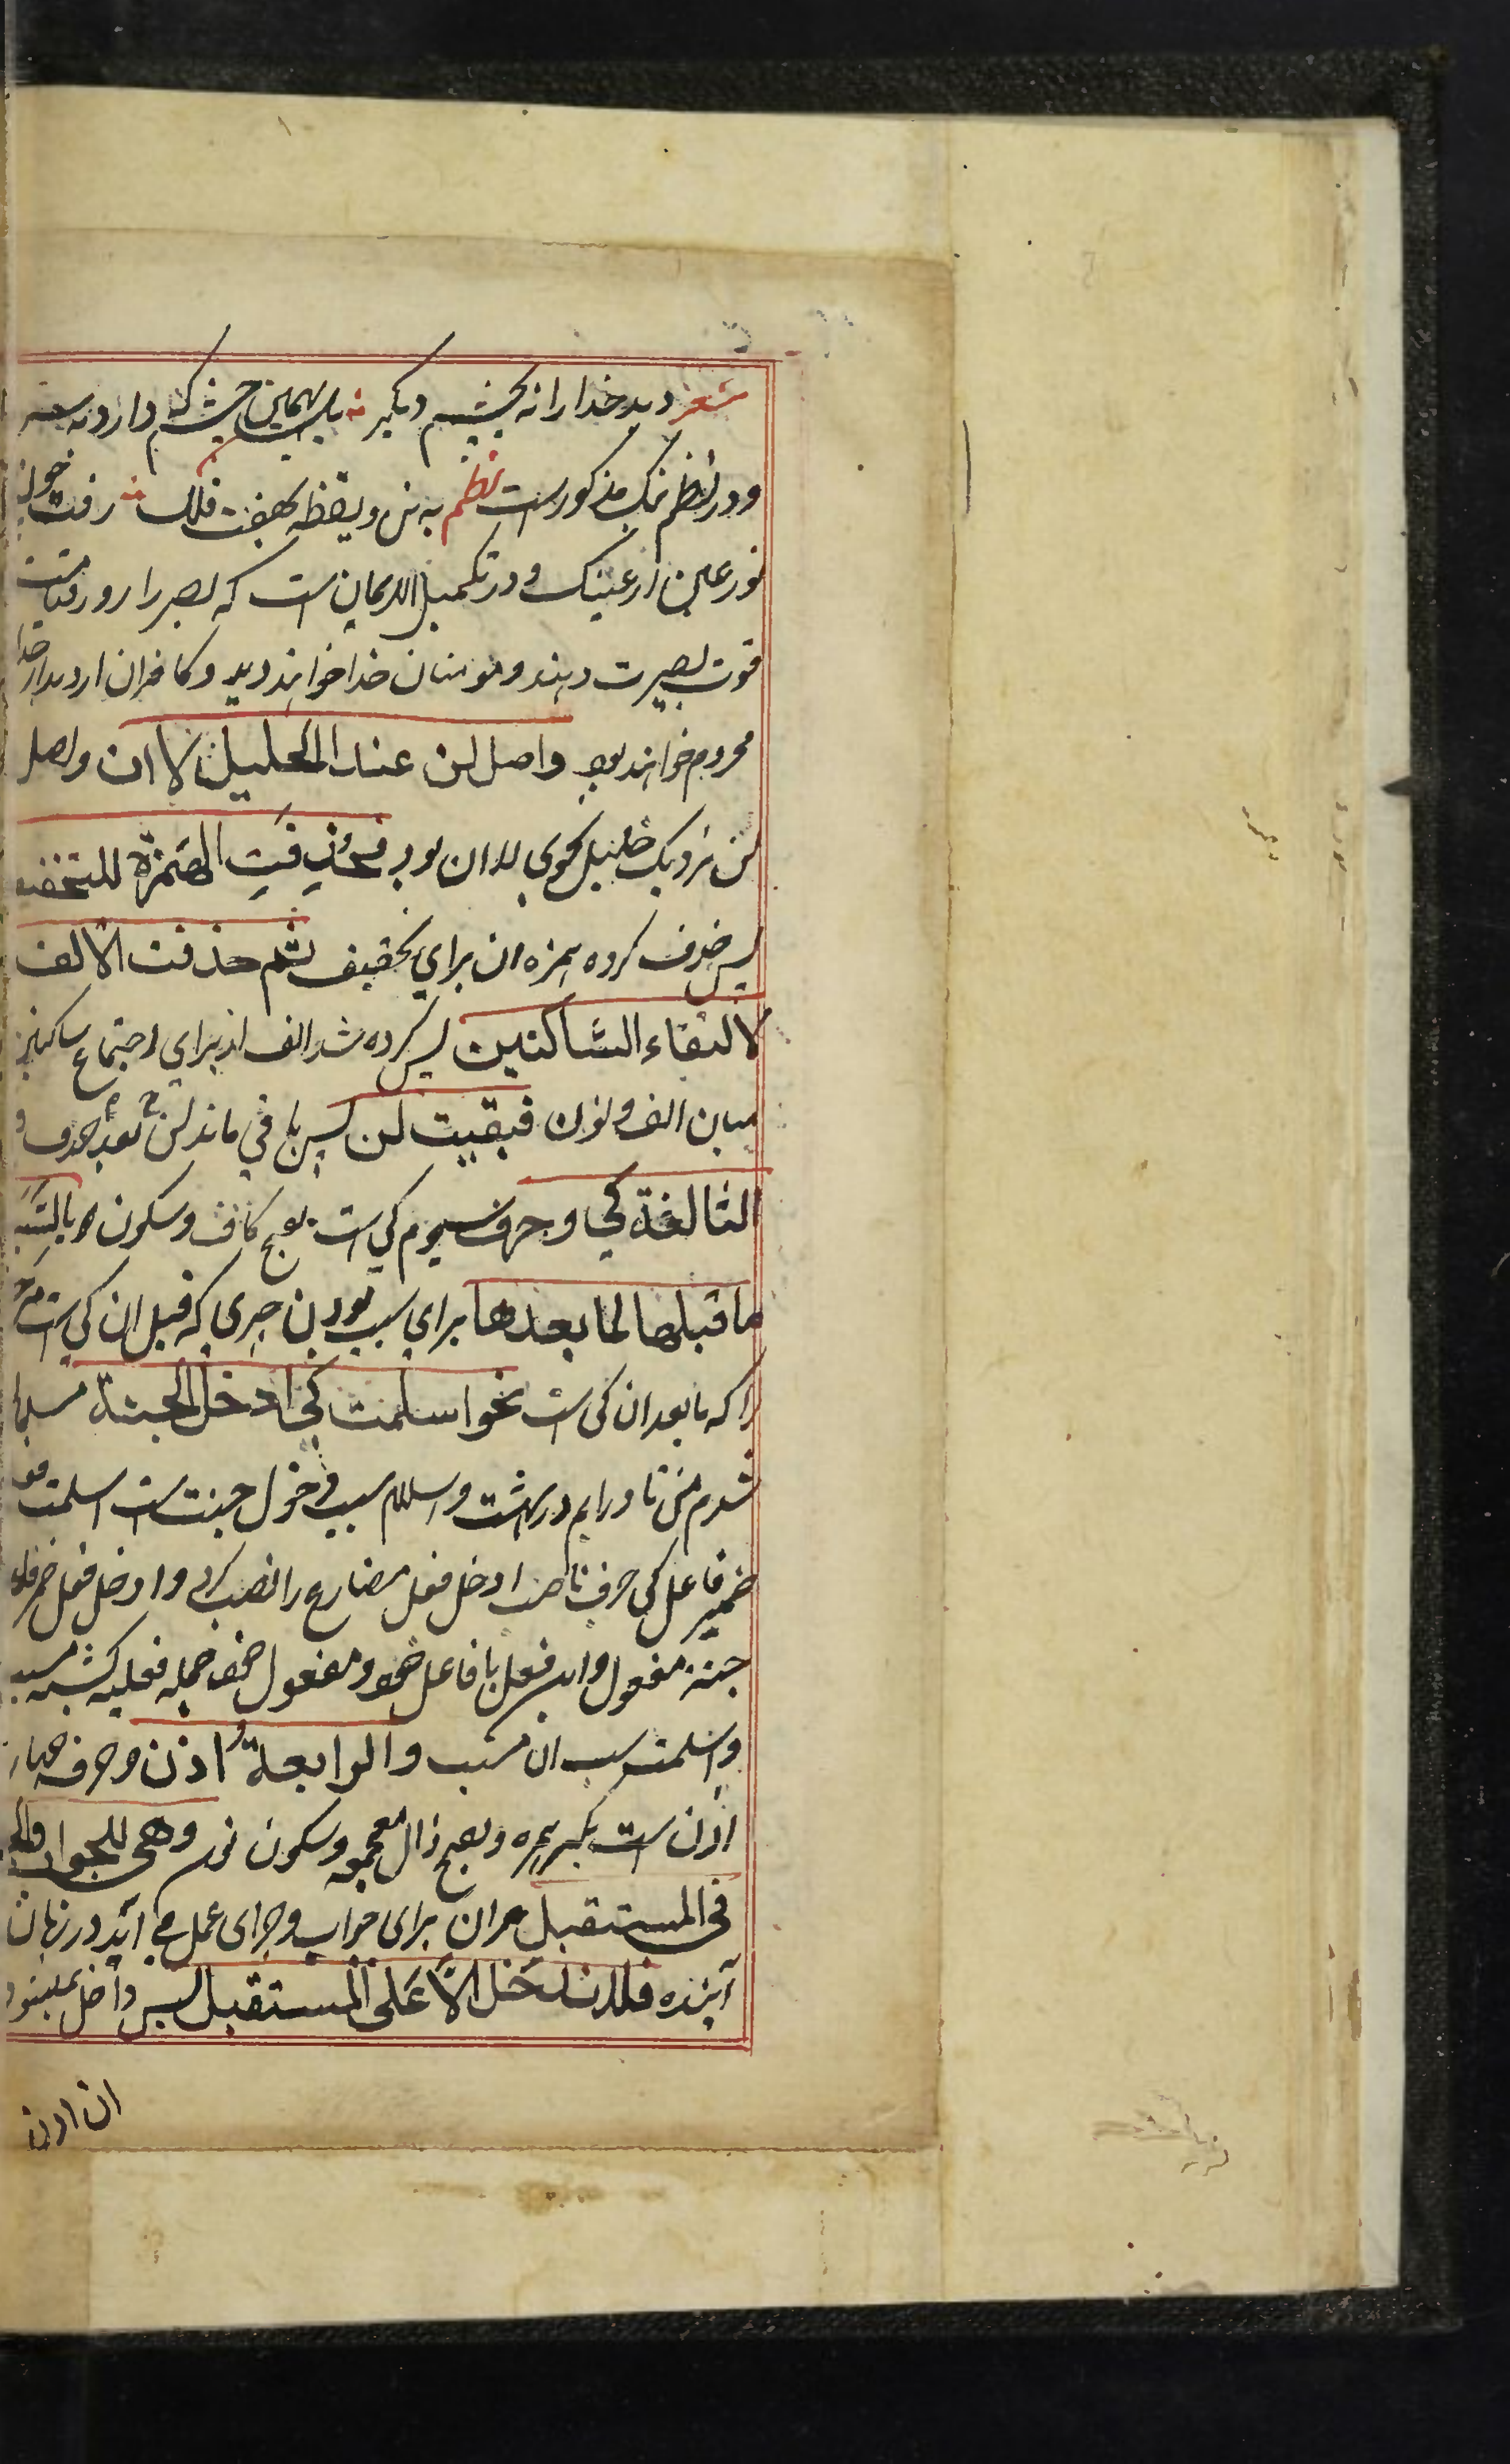 شعر دید خدا را نه بچشم دیگر بل بهمین چشم که دارد بسر
و در نظم نیک مذکور است نظم به تن و یقظه بهفت فلک رفت چون
نور عین از عینک و در تکمیل الایمان است که بصر را روز قیامت
قوت بصیرت دهند و مومنان خدا خواهند دید و کافران از دیدار خدا
محروم خواهند بود واصل لن عند الخليل لا ان واصل
لن نزدیک خلیل نحوی لا ان بود فحذفت الهمزة للتخفيف
پس حذف کرده همزه ان برای تخفیف ثم حذفت الالف
لالتقاء الساكنين پس کرده شد الف از برای اجتماع ساکنین
میان الف و نون فبقيت لن پس باقی ماند لن بعد حذف و
الثالثة كي و حرف سیوم کی است بفتح کاف و سکون یا لسببية
ما قبلها لما بعدها برای سبب بودن چیزی که قبل ان کی است مر
را که مابعد ان کی است نحو اسلمت كي ادخل الجنة مسلمان
شدم من تا درایم در بهشت و اسلام سبب دخول جنت است اسلمت فعل
ضمیر فاعل کی حرف ناصب ادخل فعل مضارع را نصب کرد و ادخل فعل ضمیر فاعل
جنة مفعول و این فعل با فاعل خود و مفعول خود جمله فعلیه گشته مسبب
و اسلمت سبب ان مسبب والرابعة اذن و حرف چهارم
اذن است بکسر همزه و بفتح ذال معجمه و سکون نون وهي للجواب والجزاء
في المستقبل و ان برای جواب و جزای عمل می آید در زمان
آینده فلا تدخل الا على المستقبل پس داخل نمیشود
ان اذن